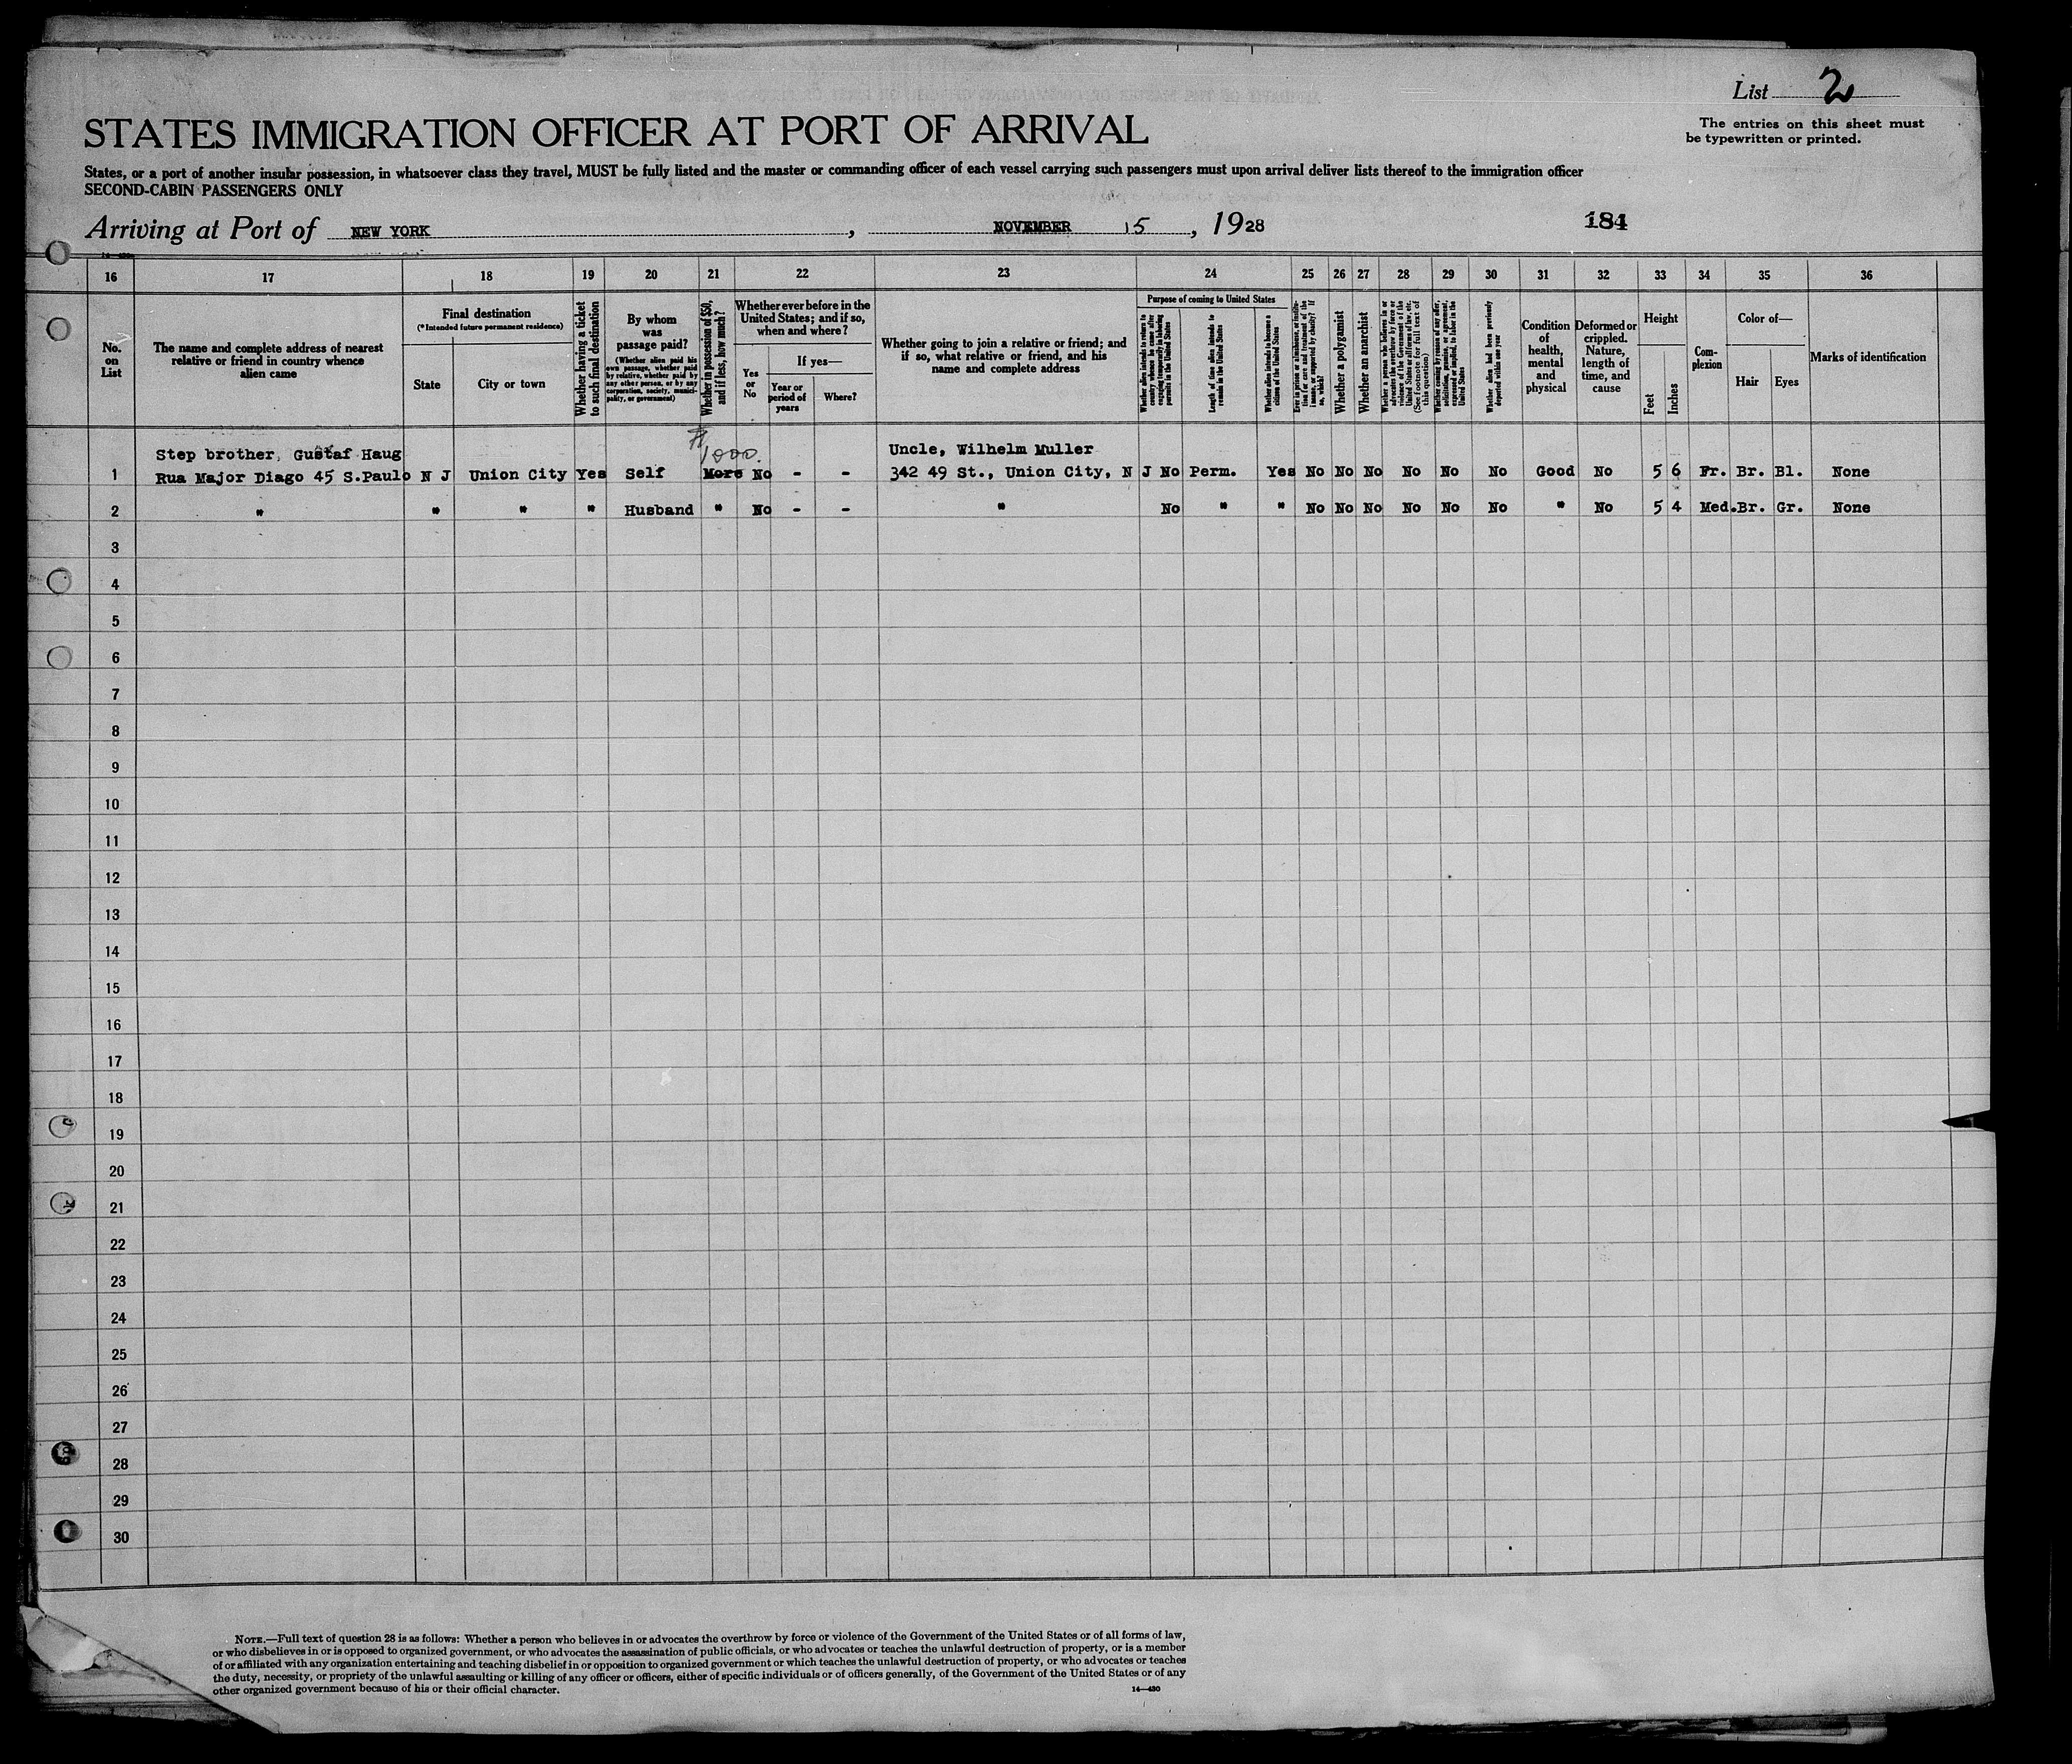 List 2
The entries on this sheet must
be typewritten or printed.
STATES IMMIGRATION OFFICER AT PORT OF ARRIVAL
States, or a port of another insular possession, in whatsoever class they travel, MUST be fully listed and the master or commanding officer of each vessel carrying such passengers must upon arrival deliver lists thereof to the immigration officer
SECOND-CABIN PASSENGERS ONLY
Arriving at Port of NEW YORK, NOVEMBER 15, 1928
184
16 17 18 19 20 21 22 23 24 25 26 27 28 29 30 31 32 33 34 35 36
No. on List
The name and complete address of nearest
relative or friend in country whence
alien came
Final destination
(*Intended future permanent residence)
State
City or town
Whether having a ticket
to such final destination
By whom
was
passage paid?
(Whether alien paid his
own passage, whether paid
by relative, whether paid by
any other person, or by any
corporation, society, munici-
pality, or government)
Whether in possession of $50,
and if less, how much?
Whether ever before in the
United States; and if so,
when and where?
Yes
or
No
If yes—
Year or
period of
years
Where?
Whether going to join a relative or friend; and
if so, what relative or friend, and his
name and complete address
Purpose of coming to United States
Length of time alien intends to
remain in the United States
Whether alien intends to become a
citizen of the United States
Whether a polygamist
Whether an anarchist
Whether alien had been previously
deported within one year
Condition
of
health,
mental
and
physical
Deformed or
crippled.
Nature,
length of
time, and
cause
Height
Feet
Inches
Com-
plexion
Color of—
Hair
Eyes
Marks of identification
Step brother, Gustaf Haug
$1000.
Uncle, Wilhelm Muller
1 Rua Major Diago 45 S.Paulo N J Union City Yes Self More No - - 342 49 St., Union City, N J No Perm. Yes No No No No No No Good No 5 6 Fr. Br. Bl. None
2 " " " " Husband " No - - " No " " No No No No No No " No 5 4 Med. Br. Gr. None
3
4
5
6
7
8
9
10
11
12
13
14
15
16
17
18
19
20
21
22
23
24
25
26
27
28
29
30
NOTE.—Full text of question 28 is as follows: Whether a person who believes in or advocates the overthrow by force or violence of the Government of the United States or of all forms of law,
or who disbelieves in or is opposed to organized government, or who advocates the assassination of public officials, or who advocates or teaches the unlawful destruction of property, or is a member
of or affiliated with any organization entertaining and teaching disbelief in or opposition to organized government or which teaches the unlawful destruction of property, or who advocates or teaches
the duty, necessity, or propriety of the unlawful assaulting or killing of any officer or officers, either of specific individuals or of officers generally, of the Government of the United States or of any
other organized government because of his or their official character.
14—430